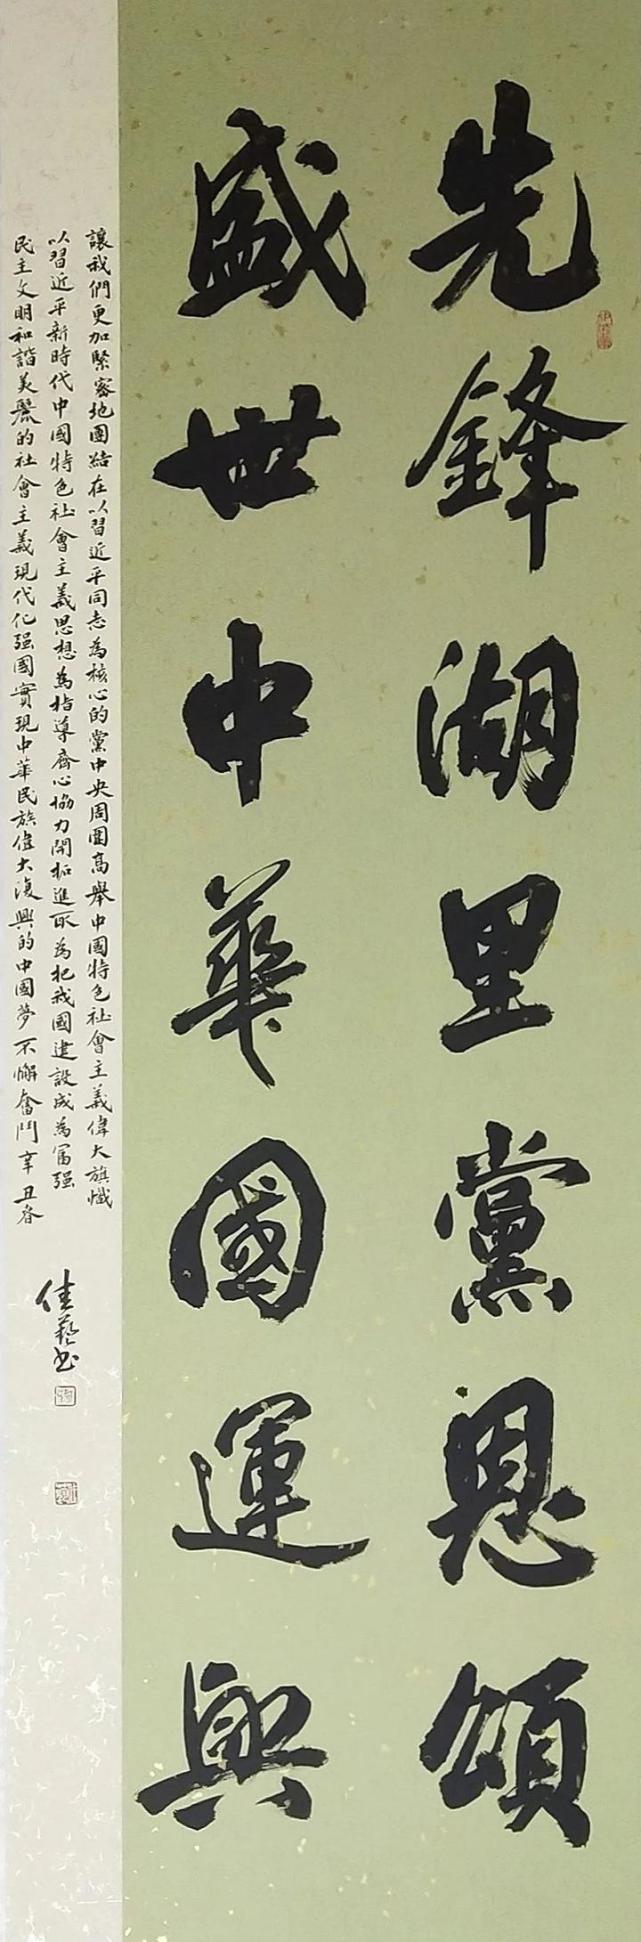 先鋒湖里黨恩頌
盛世中華國運興
讓我們更加緊密地團結在以習近平同志為核心的黨中央周圍高舉中國特色社會主義偉大旗幟
以習近平新時代中國特色社會主義思想為指導齊心協力開拓進取為把我國建設成為富强
民主文明和諧美麗的社會主義現代化强國實現中華民族偉大復興的中國夢不懈奮鬥辛丑春
佳藝書